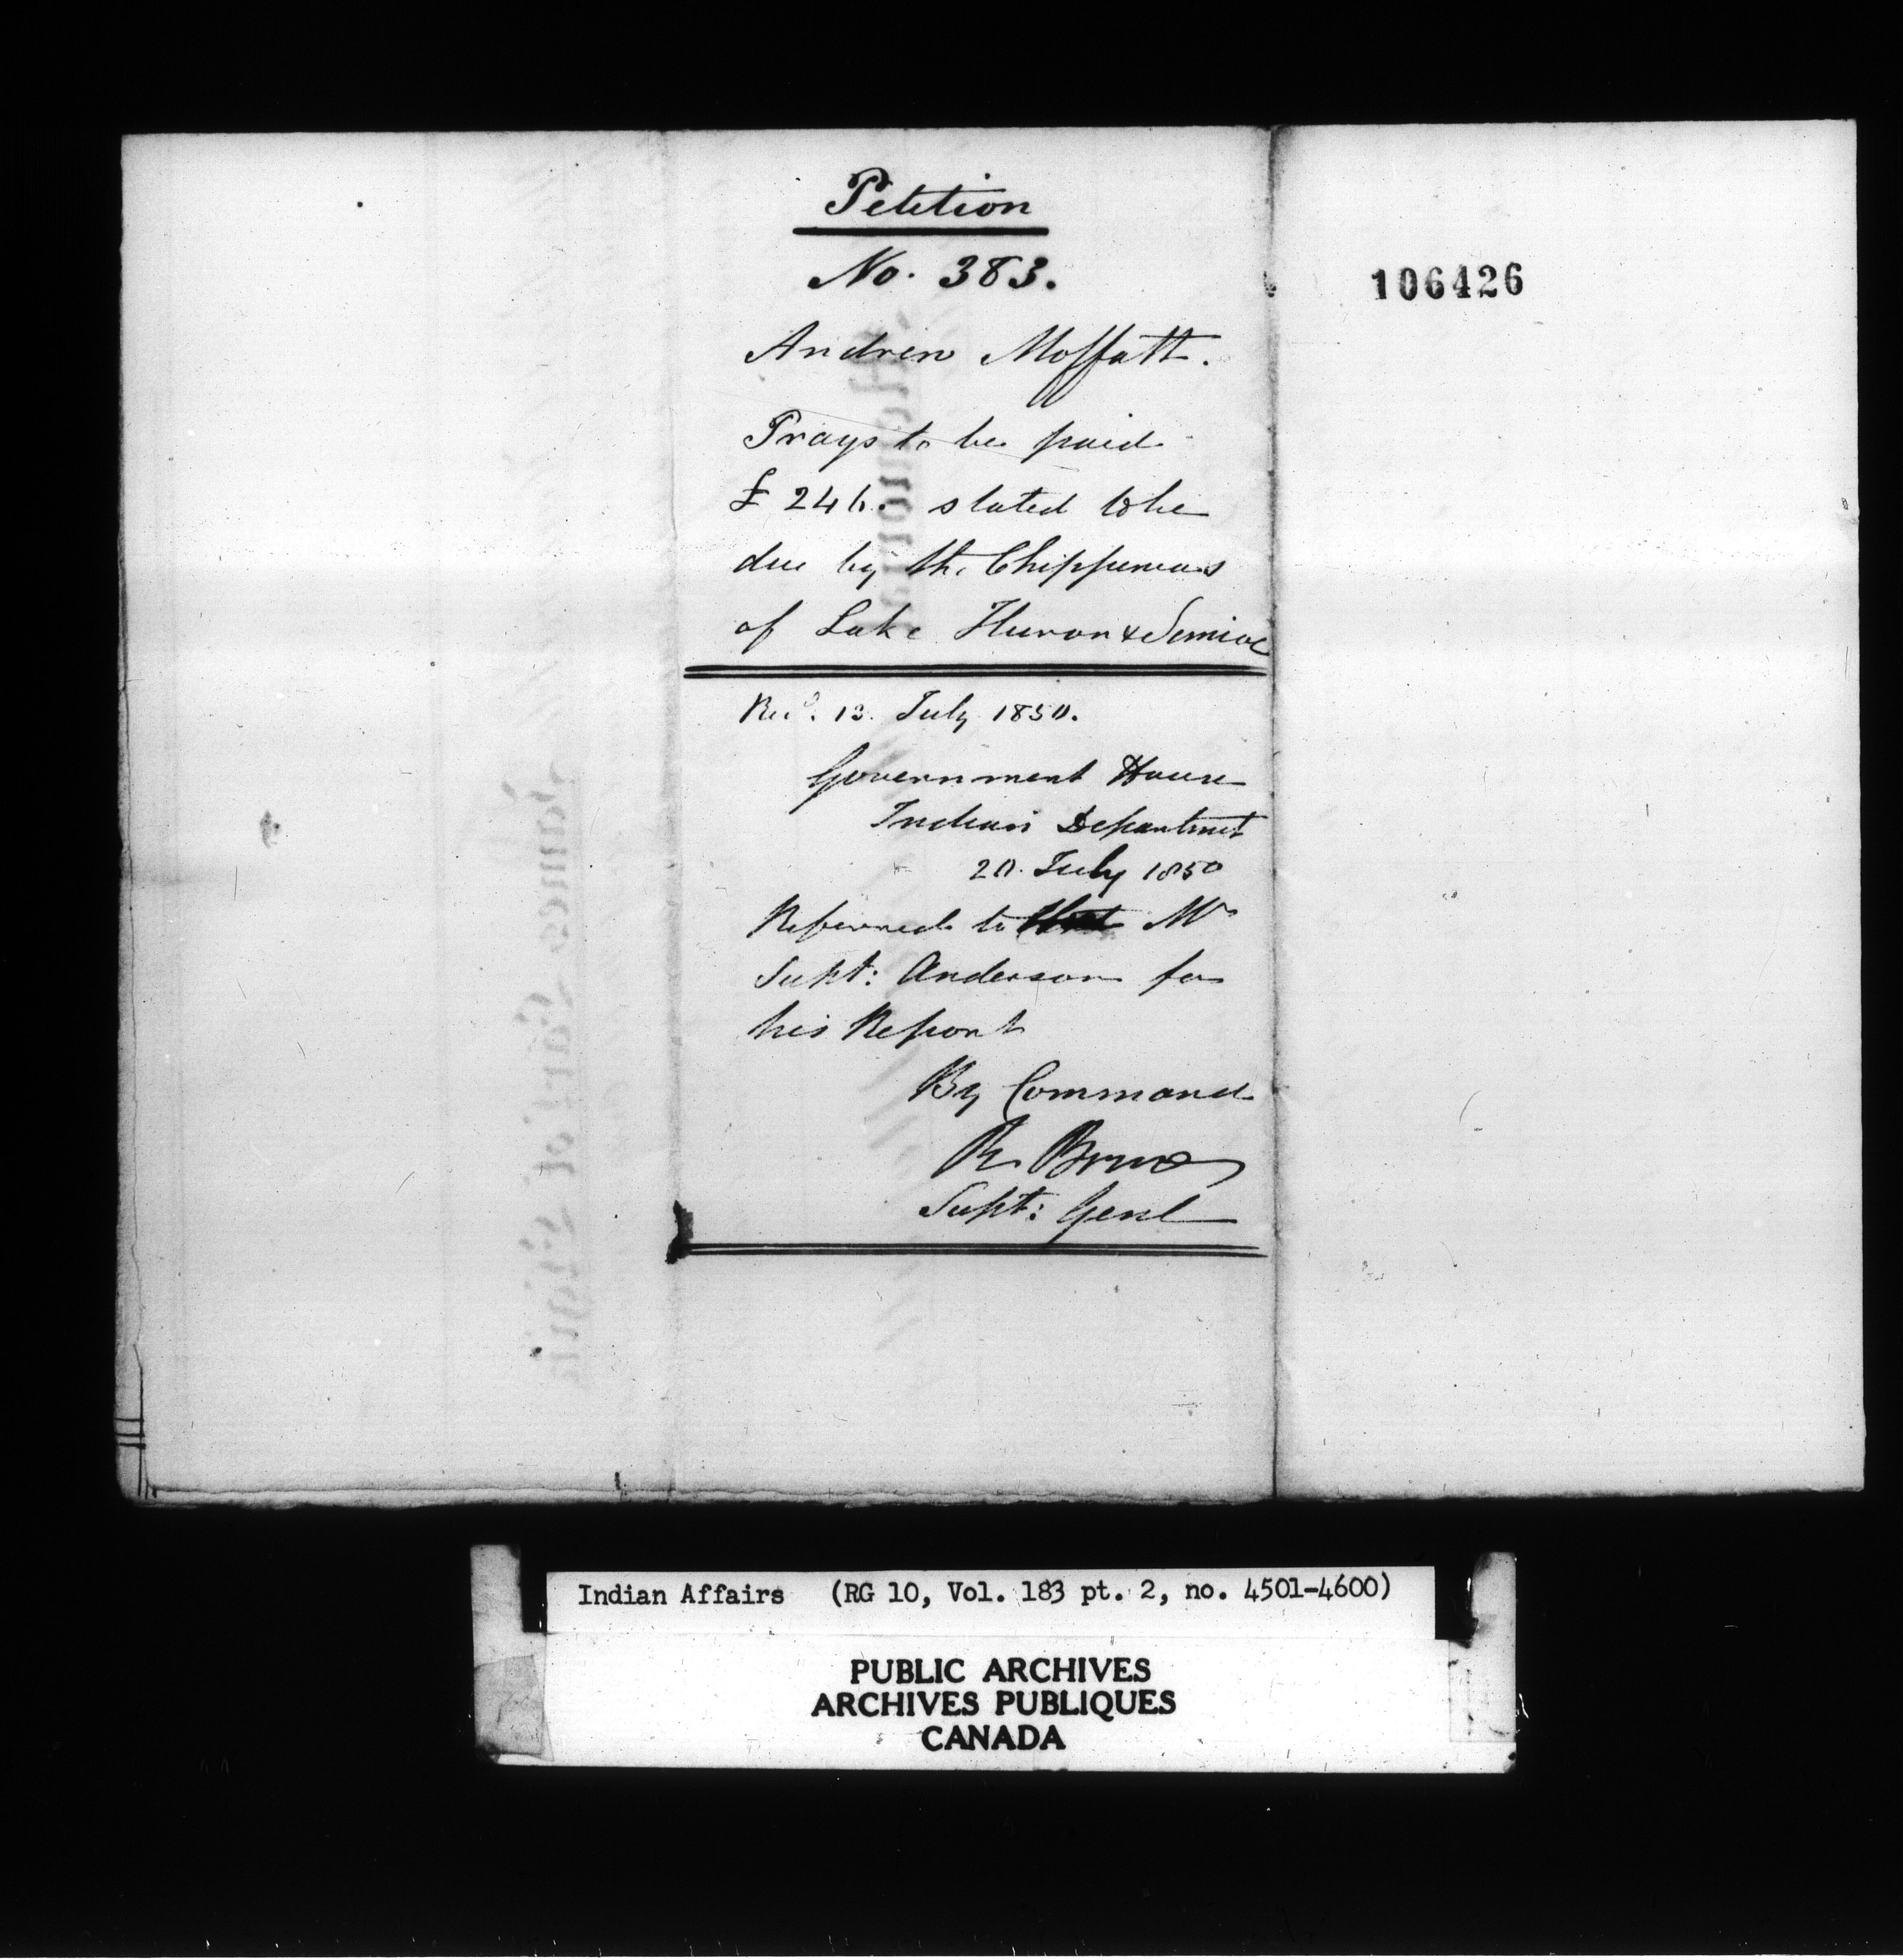 Petition
No. 383.
Andrew Moffatt.
Prays to be paid
£ 246. stated to be
due by the Chippewas
of Lake Huron & Simcoe
Recd. 13. July 1850.
Government House
Indian Department
20. July 1850
Referred to Mr
Supt: Anderson for
his Report
By Command
R. Bruce
Supt: Genl
106426
Indian Affairs (RG 10, Vol. 183 pt. 2, no. 4501-4600)
PUBLIC ARCHIVES
ARCHIVES PUBLIQUES
CANADA